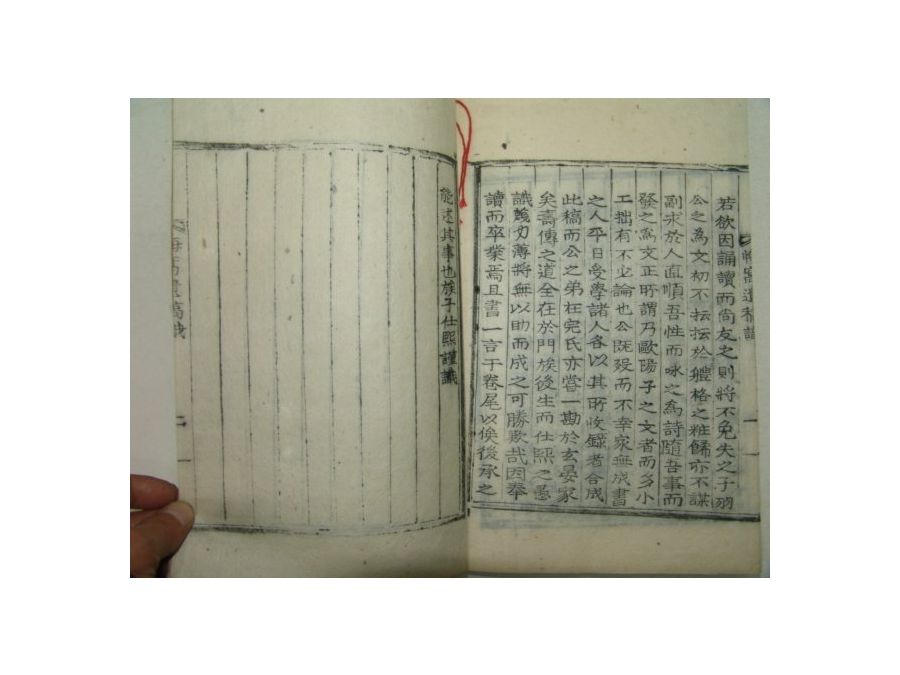 若欲因誦讀而尙友之則將不免失之子羽
公之爲文初不抎抎於軆格之粧餙亦不謀
副求於人直順吾性而咏之爲詩隨吾事而
發之爲文正所謂乃歐陽子之文者而多小
工拙有不少論也公旣歿而不幸家無成書
之人平日受學諸人各以其所收錄者合成
此稿而公之弟在完氏亦嘗一勘於玄晏家
矣壽傳之道全在於門族後生而仕熙之愚
識淺力薄將無以助而成之可勝歎哉因奉
讀而卒業焉且書一言于卷尾以俟後承之
能述其事也族子仕熙謹識